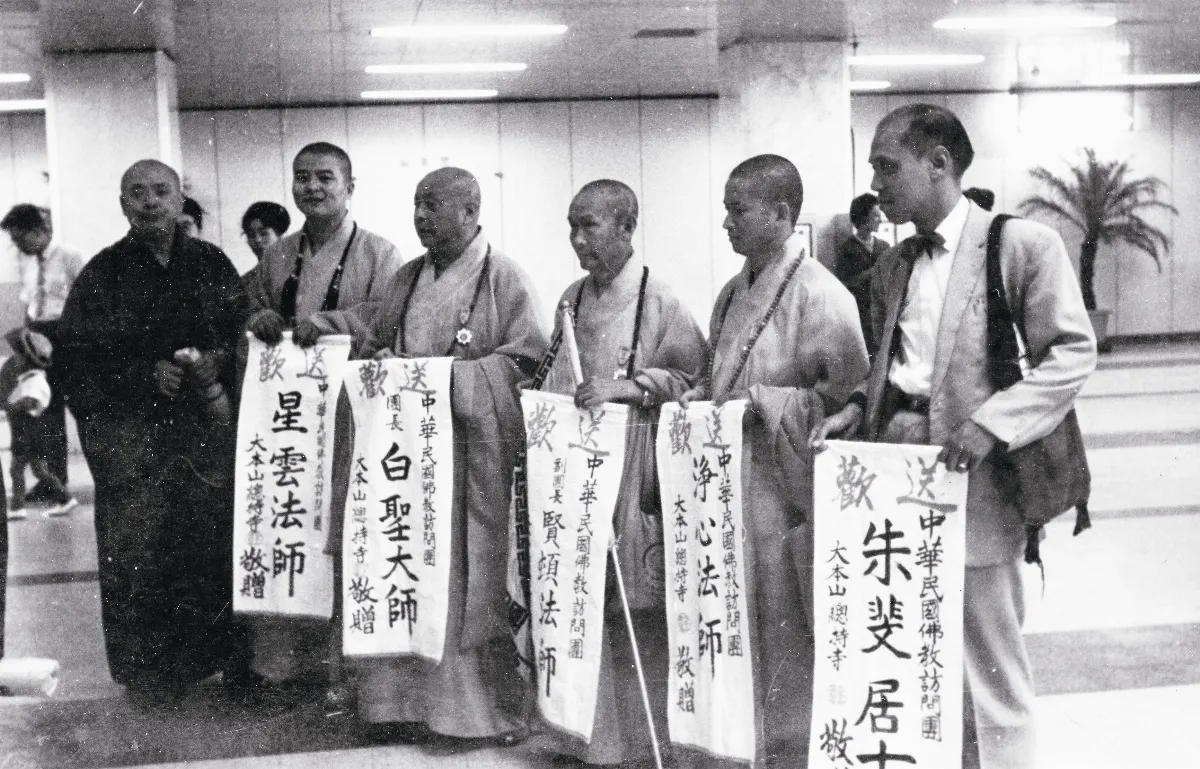 歡送
中華民國佛教訪問團
星雲法師
大本山總持寺 敬贈
歡送
中華民國佛教訪問團
團長 白聖大師
大本山總持寺 敬贈
歡送
中華民國佛教訪問團
副團長 賢頓法師
歡送
中華民國佛教訪問團
浄心法師
大本山總持寺 敬贈
歡送
中華民國佛教訪問團
朱斐居士
大本山總持寺 敬